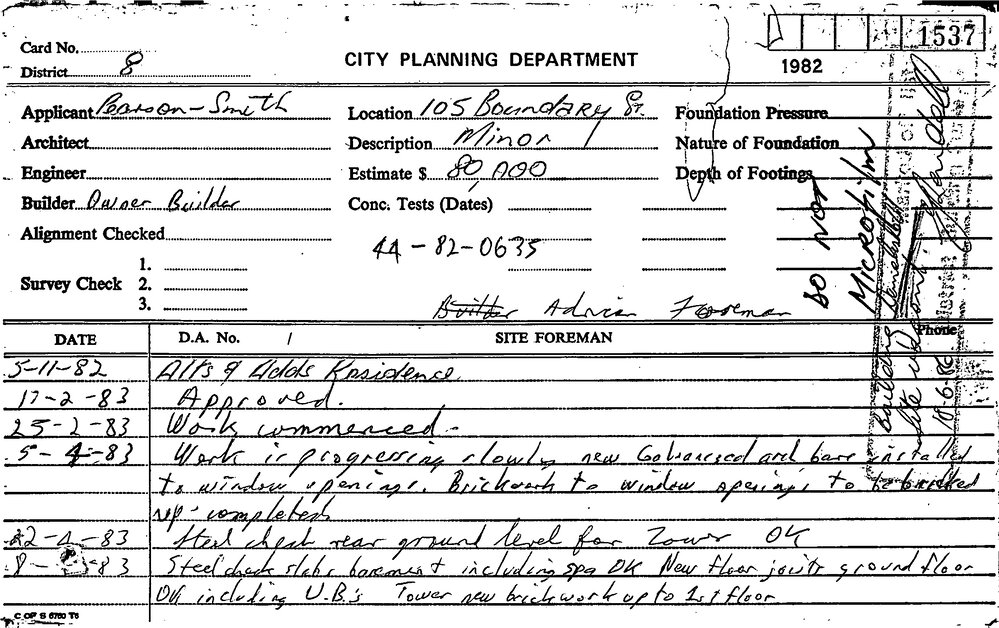 1537
Card No.
District 8
CITY PLANNING DEPARTMENT
1982
Applicant Pearson-Smith
Location 105 Boundary St.
Foundation Pressure
Architect
Description Minor
Nature of Foundation
Engineer
Estimate $ 80,000
Depth of Footings
Builder Owner Builder
Conc. Tests (Dates)
Alignment Checked
44-82-0635
Survey Check
1.
2.
3.
DO NOT
MICROFILM
Builder Adrian Foreman
DATE D.A. No. / SITE FOREMAN Phone
5-11-82 Alts & Adds Residence
17-2-83 Approved.
25-2-83 Work commenced.
5-4-83 Work is progressing slowly new Galvanized arch bars installed
to window openings. Brickwork to window openings to be bricked
up - completed
22-4-83 Steel check rear ground level for Tower OK
8- -83 Steel check slabs basement including spa OK New floor joists ground floor
OK including U.B.'s Tower new brickwork up to 1st floor.
C OF S 6760 T6
building
site
18-6-86